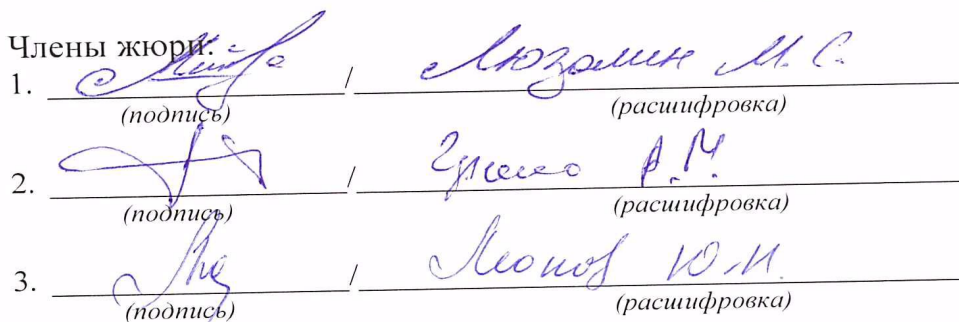 Члены жюри:
1. / Люзалин М. С.
(подпись) (расшифровка)
2. / А.М.
(подпись) (расшифровка)
3. / Леонов Ю.Н.
(подпись) (расшифровка)